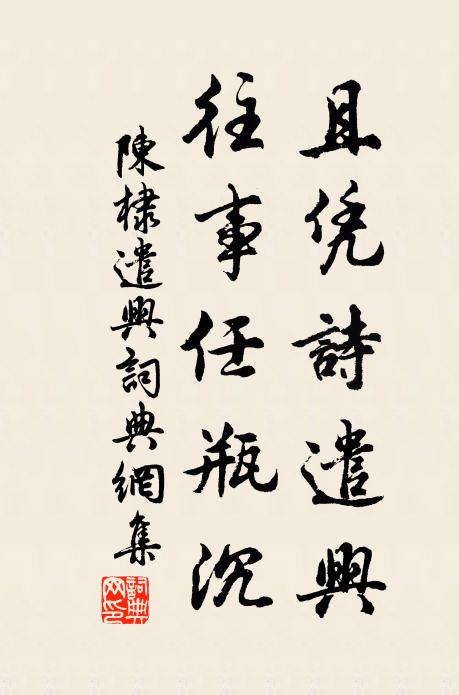 且凭詩遣興
往事任瓶沉
陳棣遣興詞典網集
詞典網印